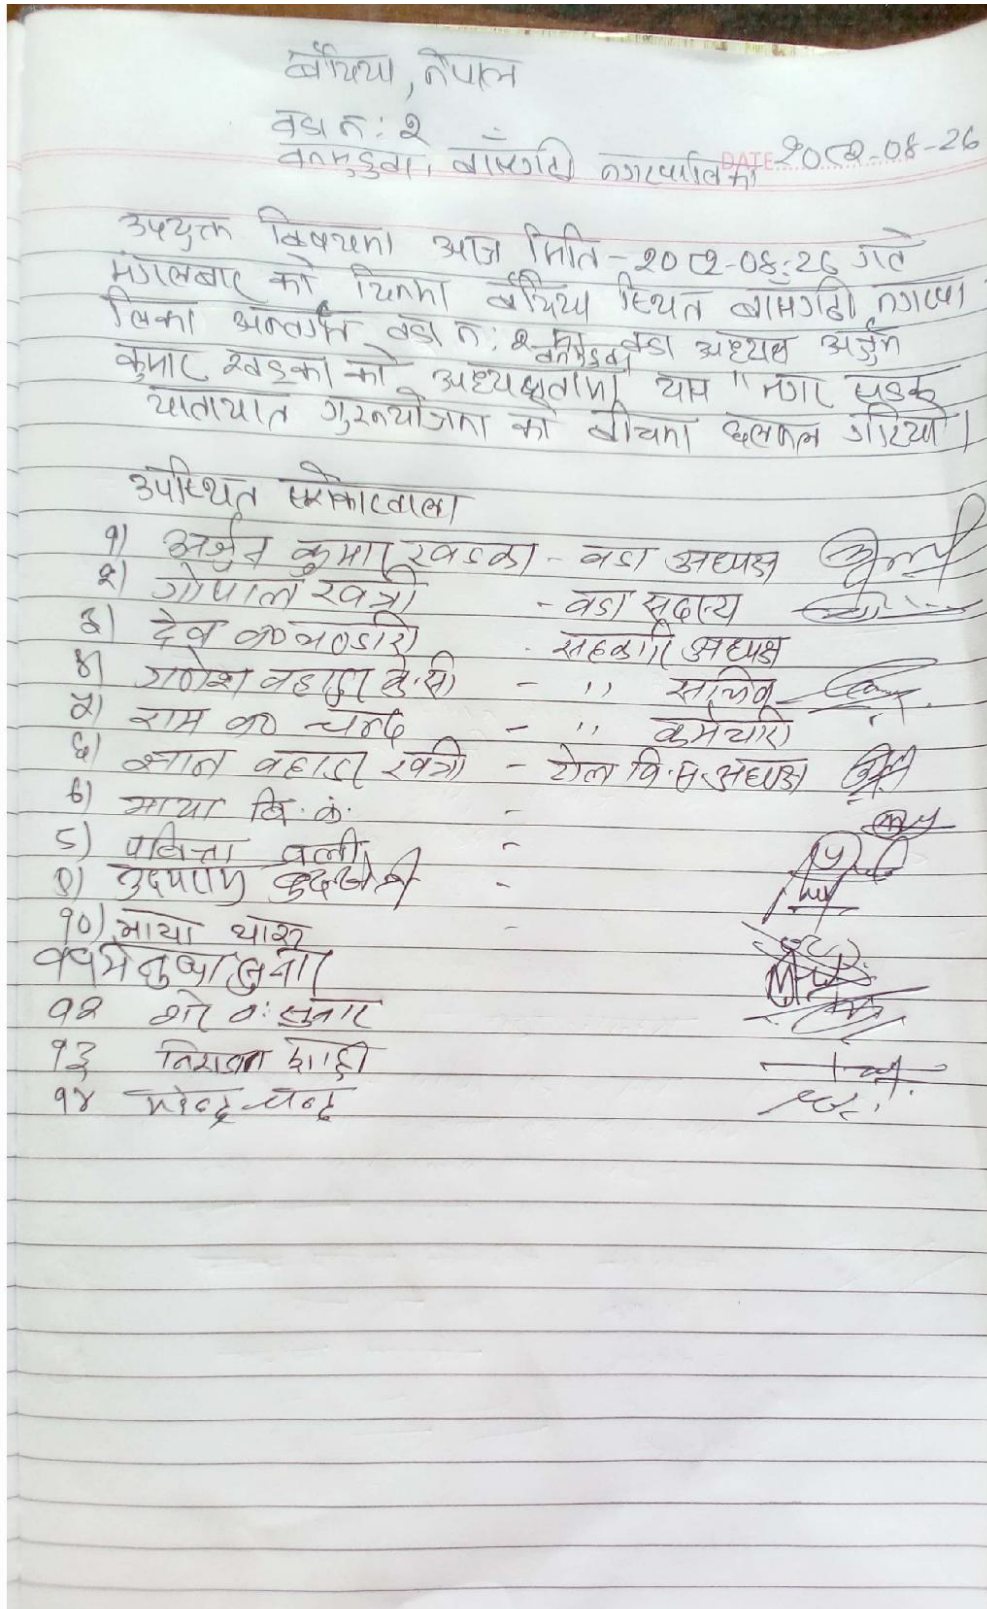 बर्दिया, नेपाल
वडा नं: २
वनभुडुवा, बाँसगढी नगरपालिका DATE २०८२-०८-२६
उपयुक्त बिषयमा आज मिति - २०८२-०८-२६ गते
मंगलबार को दिनमा बर्दिया स्थित बासगढी नगरपा
लिका अन्तर्गत वडा नं: २ वडा अध्यक्ष अर्जुन
कुमार खड्का को अध्यक्षतामा यस "नगर सडक
यातायात गुरुयोजना को बीचमा छलफल गरियो।
उपस्थित सरोकारवाला
१) अर्जुन कुमार खडका - वडा अध्यक्ष
२) गोपाल खत्री - वडा सदस्य
३) देव ब० भण्डारी - सहकारी अध्यक्ष
४) गणेश बहादुर के.सी - ,, सचिव
५) राम ब० चन्द - ,, कर्मचारी
६) ज्ञान बहादुर खत्री - टोल वि.स. अध्यक्ष
७) माया बि. क. -
८) पबित्रा वली -
९) -
१०) माया थारु -
११ मेनुका सुनार
१२ शेर ब: सुनार
१३ निराजन शाही
१४ चन्द